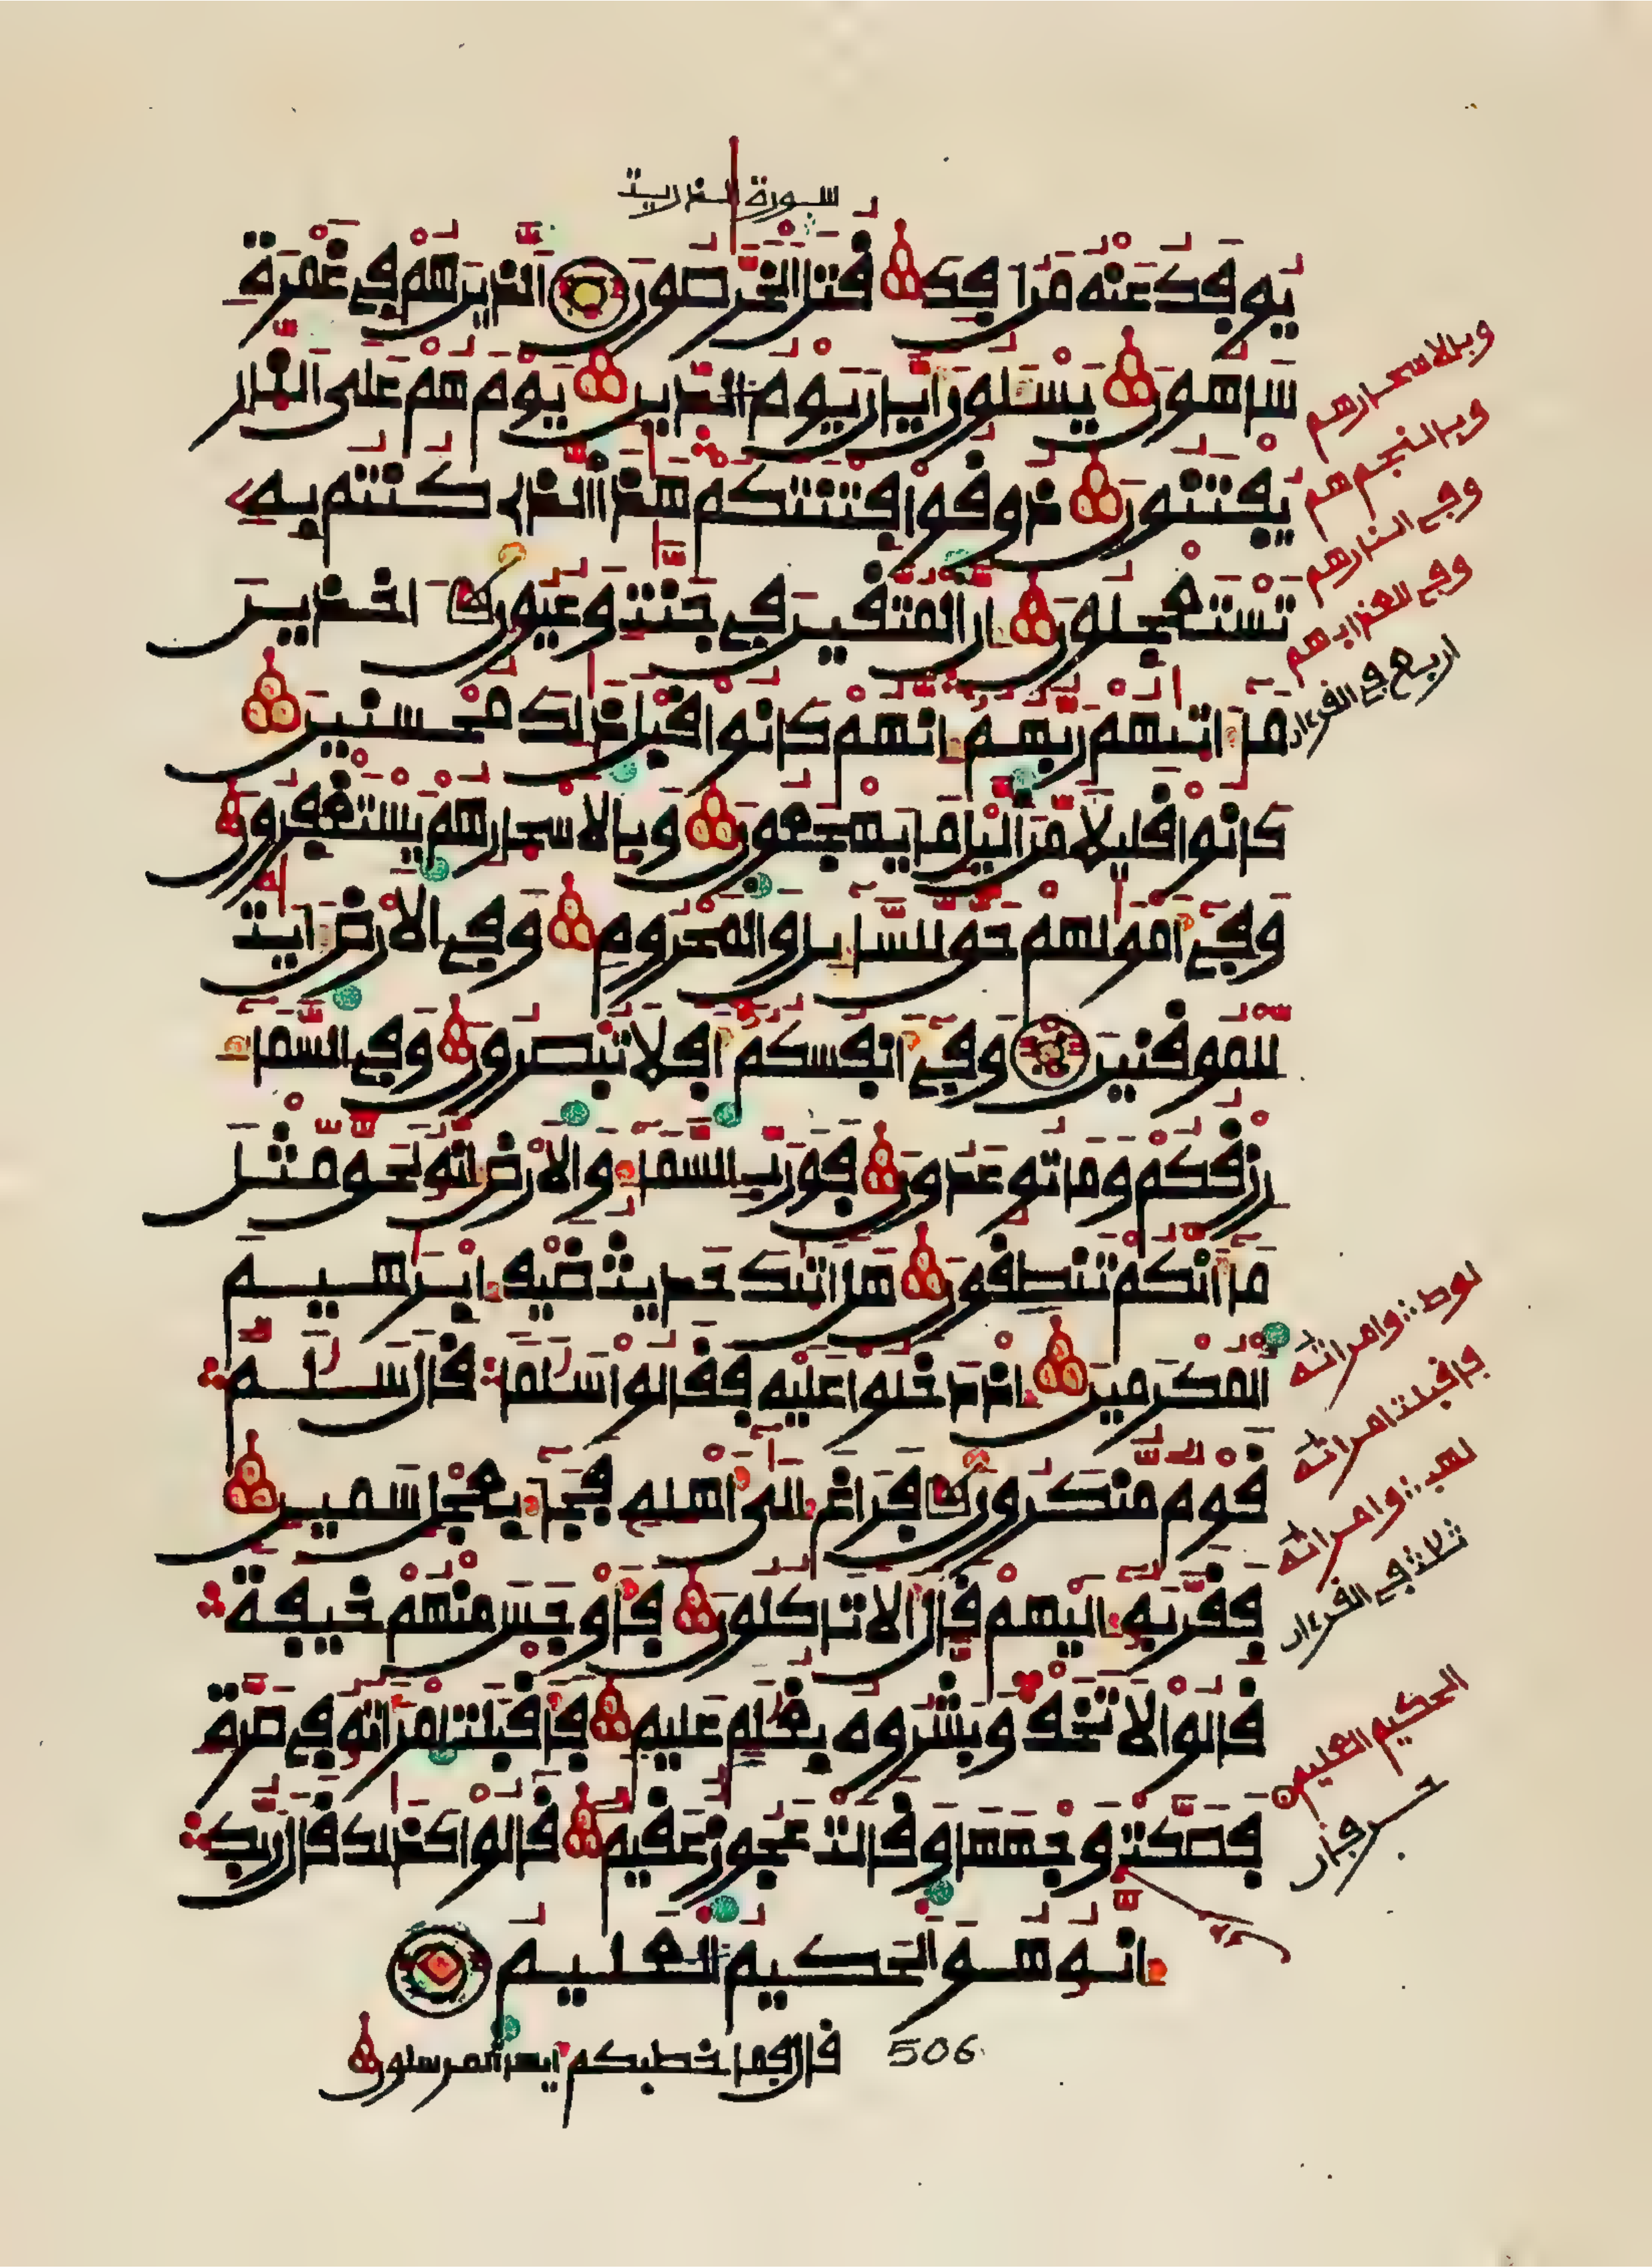 سورة الذريت
يوفك عنه من افك قتل الخرصون الذين هم في غمرة
ساهون يسلون ايان يوم الدين يوم هم على النار
يفتنون ذوقوا فتنتكم هذا الذي كنتم به
تستعجلون ان المتقين في جنت وعيون اخذين
ما اتيهم ربهم انهم كانوا قبل ذلك محسنين
كانوا قليلا من اليل ما يهجعون وبالاسحار هم يستغفرون
وفي امولهم حق للسايل والمحروم وفي الارض ايت
للموقنين وفي انفسكم افلا تبصرون وفي السماء
رزقكم وما توعدون فورب السماء والارض انه لحق مثل
ما انكم تنطقون هل اتيك حديث ضيف ابرهيم
المكرمين اذ دخلوا عليه فقالوا سلما قال سلم
قوم منكرون فراغ الى اهله فجاء بعجل سمين
فقربه اليهم قال الا تاكلون فاوجس منهم خيفة
قالوا لا تخف وبشروه بغلم عليم فاقبلت امراته في صرة
فصكت وجهها وقالت عجوز عقيم قالوا كذلك قال ربك
انه هو الحكيم العليم
506 قال فما خطبكم ايها المرسلون
وبالاسحارهم
وبالنجم هم
وفي النارهم
وفي العذابهم
اربع في القرءان
لوط وامراته
فاقبلت امراته
لهب وامراته
ثلاث في القرءان
الحكيم العليم